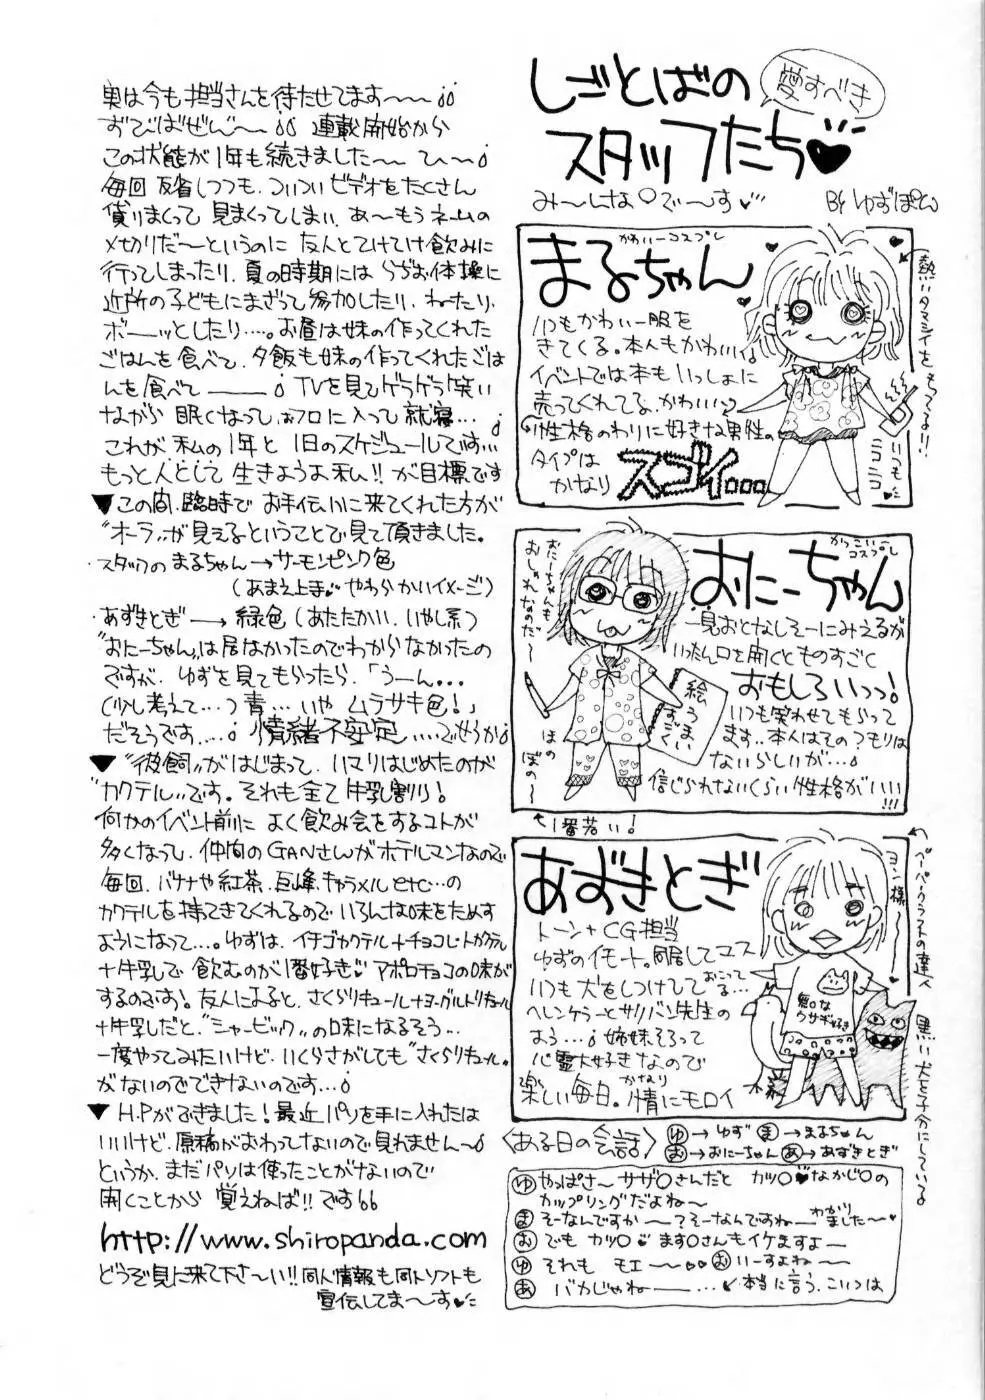 しごとばの
愛すべき
スタッフたち
み〜んな○で〜す
By ゆずぽん
実は今も担当さんを待たせてます〜〜
連載開始から
この状態が1年も続きました〜 ひ〜
毎回反省しつつも、ついついビデオをたくさん
貸りまくって見まくってしまい、あ〜もうネームの
〆切りだ〜というのに 友人とてけてけ飲みに
行ってしまったり、夏の時期にはらぢお体操に
近所の子どもにまざって参加したり、ねたり、
ボーーッとしたり…。お昼は妹の作ってくれた
ごはんを食べて、夕飯も妹の作ってくれたごは
んを食べて―――TVを見てゲラゲラ笑い
ながら 眠くなって、おフロに入って就寝…
これが私の1年と1日のスケジュールです…
もっと人として生きようよ私!! が目標です
▼この間、臨時でお手伝いに来てくれた方が
"オーラ"が見えるということで見て頂きました。
・スタッフのまるちゃん→サーモンピンク色
(あまえ上手♥やわらかいイメージ)
・あずきとぎ→緑色(あたたかい、いやし系)
"おにーちゃん"は居なかったのでわからなかったの
ですが、ゆずを見てもらったら、「うーん…
(少し考えて…)青…いや ムラサキ色!」
だそうです….情緒不安定….でせうか
▼"彼飼"がはじまって、ハマりはじめたのが
"カクテル"です。それも全て牛乳割り!
何かのイベント前に よく飲み会をするコトが
多くなって、仲間のGANさんがホテルマンなので
毎回、バナナや紅茶、巨峰、キャラメルetc…の
カクテルを持てきてくれるので いろんな味をためす
ようになって…。ゆずは、イチゴカクテル+チョコレートカクテル
+牛乳で 飲むのが1番好き♥ アポロチョコの味が
するのです!友人によると、さくらリキュール+ヨーグルトリキュール
+牛乳だと、"シャービック"の味になるそう…
一度やってみたいけど、いくらさがしても"さくらリキュール"
がないのでできないのです…
▼ H.Pができました!最近パソを手に入れたは
いいけど、原稿がおわってないので見れません〜
というか、まだパソは使ったことがないので
開くことから 覚えねば!! です
http://www.shiropanda.com
どうぞ見に来て下さ〜い!!同人情報も同人ソフトも
宣伝してま〜す♥
かわいーコスプレ
まるちゃん
いつもかわいー服を
きてくる。本人もかわいい
イベントでは本もいっしょに
売ってくれてる。かわいい
性格のわりに好きな男性の
タイプは
かなり
スゴイ。。。
熱いタマシイをもってるよ!!
いつもニコニコ
かっこいーコスプレ
おにーちゃん
一見おとなしそーにみえるが
いったん口を開くとものすごく
おもしろいっっ!
いつも笑わせてもらって
ます…本人はそのつもりは
ないらしいが…
信じられないくらい性格がいい
!!!
おにーちゃんも
おしゃれなのだ〜
絵うますごく
ほのぼの〜
1番若い!
あずきとぎ
トーン+CG担当
ゆずのイモート。同居してマス
いつも犬をしつけててる…
おこって
ヘレンケラーとサリバン先生の
よう…姉妹そろって
心霊大好きなので
楽しい毎日。かなり情にモロイ
ヨン様〜
悪口なウサギ好き
ペーパークラフトの達人
黒い犬を子分にしている
〈ある日の会話〉
ゆ→ゆず ま→まるちゃん
お→おにーちゃん あ→あずきとぎ
ゆ やっぱさ〜サザ○さんだと カツ○♥なかじ○の
カップリングだよね〜
ま そーなんですか〜〜?そーなんですね〜わかりました〜
お でも カツ○♥ます○さんもイケますよー
ゆ それも モエ―〜♥♥ お いーすよねー
あ バカじゃねー―…・本当に言う、こいつは